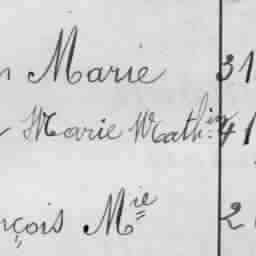 n Marie 31
Marie Math.in 41
nçois M.ie 2